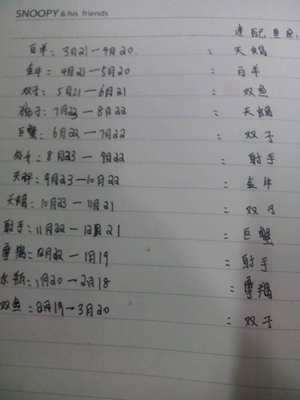 SNOOPY & his friends
速配星座:
白羊: 3月21 — 4月20 : 天蝎
金牛: 4月21 — 5月20 : 白羊
双子: 5月21 — 6月21 : 双鱼
狮子: 7月23 — 8月22 : 天蝎
巨蟹: 6月22 — 7月22 : 双子
8月23 — 9月22 : 射手
天秤: 9月23 — 10月22 : 金牛
天蝎: 10月23 — 11月21 : 双子
射手: 11月22 — 12月21 : 巨蟹
摩羯: 12月22 — 1月19 : 射手
水瓶: 1月20 — 2月18 : 摩羯
双鱼: 2月19 — 3月20 : 双子